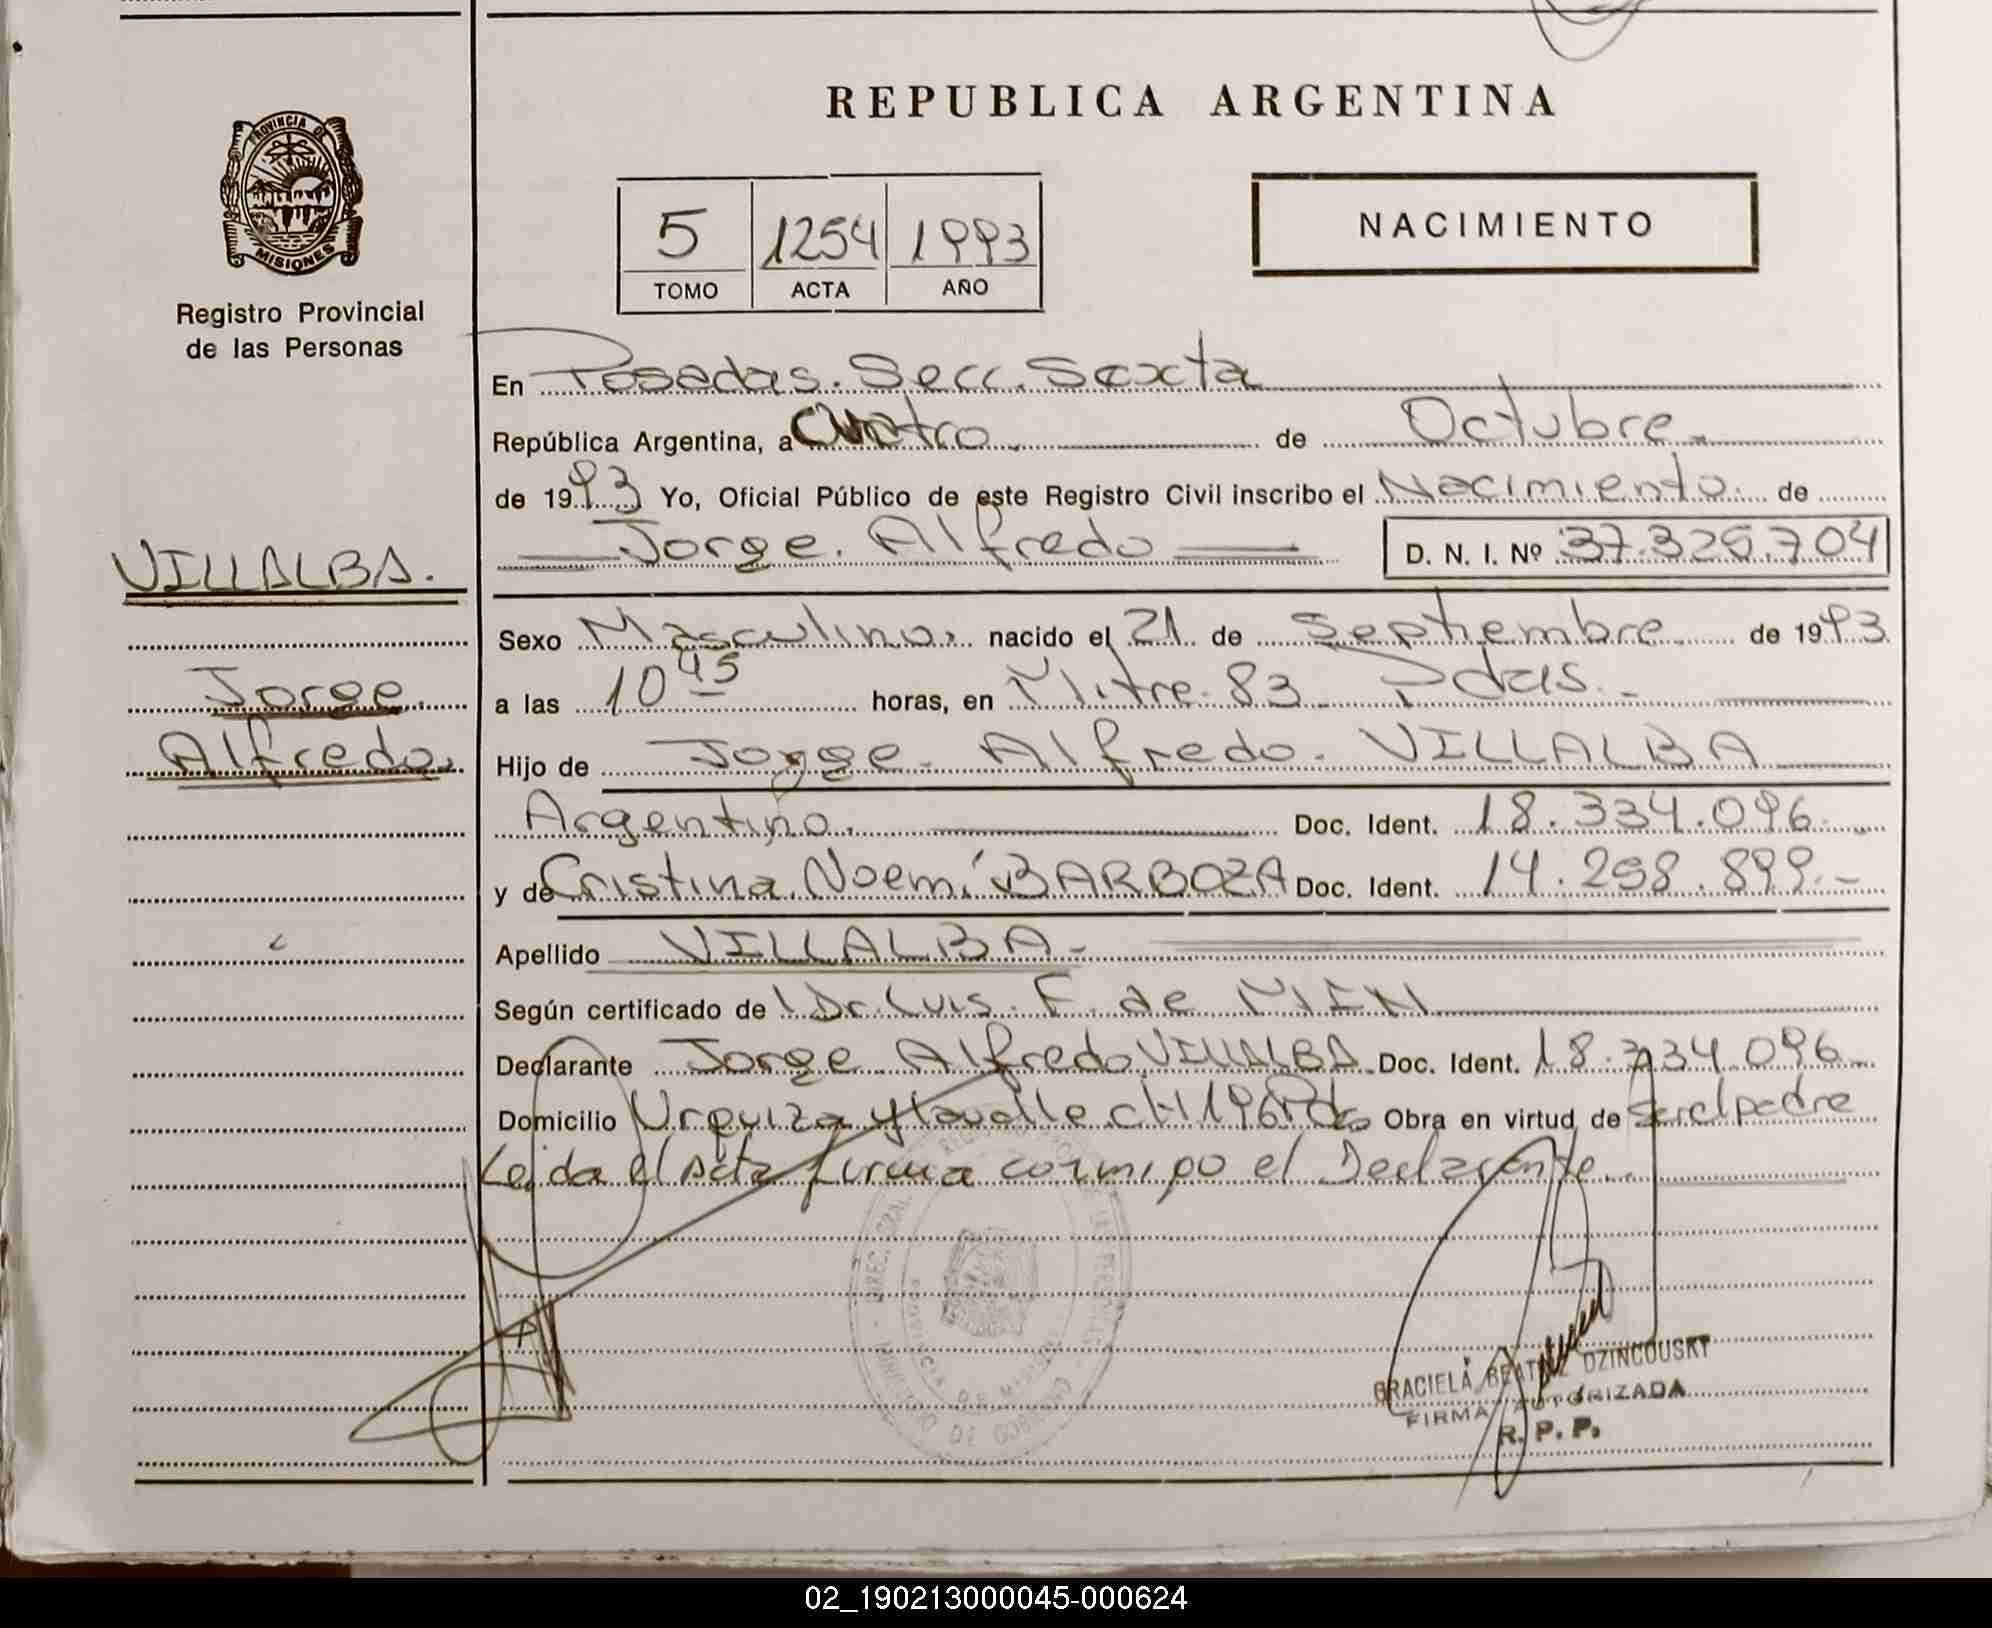 REPUBLICA ARGENTINA
PROVINCIA DE
MISIONES
Registro Provincial
de las Personas
5 1254 1993
TOMO ACTA AÑO
NACIMIENTO
En Posadas. Secc. Sexta
República Argentina, a Cuatro de Octubre
de 1993 Yo, Oficial Público de este Registro Civil inscribo el Nacimiento de
Jorge Alfredo D. N. I. Nº 37.325.704
VILLALBA.
Jorge
Alfredo.
Sexo Masculino nacido el 21 de Septiembre de 1993
a las 10 45 horas, en Mitre 83 Pdas.
Hijo de Jorge Alfredo VILLALBA
Argentino. Doc. Ident. 18.334.096
y de Cristina Noemí BARBOZA Doc. Ident. 14.258.899.-
Apellido VILLALBA-
Según certificado de Dr. Luis F. de
Declarante Jorge Alfredo VILLALBA Doc. Ident. 18.334.096
Domicilio Urquiza y Lavalle ch 196 Pdas Obra en virtud de ser el padre
Leida el Acta firma conmigo el Declarante
GRACIELA BEATRIZ DZINCOUSKY
FIRMA AUTORIZADA
R. P. P.
02_190213000045-000624